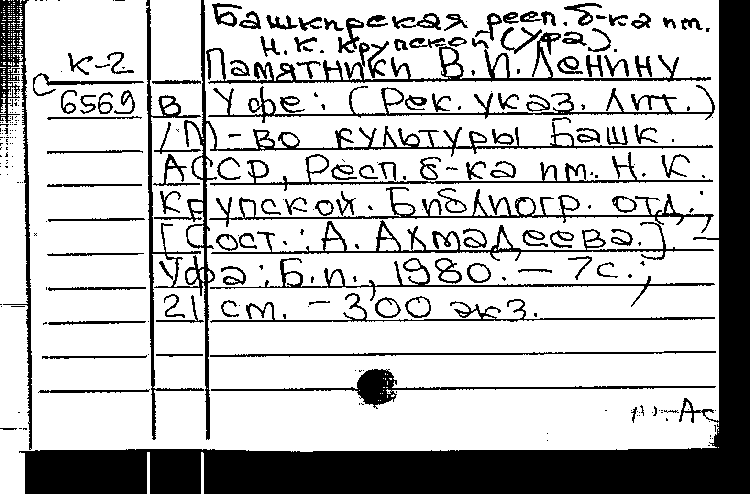 Башкирская респ. б-ка им.
Н. К. Крупской (Уфа).
К-2 Памятники В. И. Ленину
6569 в Уфе: (Рек. указ. лит.)
/М-во культуры Башк.
АССР, Респ. б-ка им. Н. К.
Крупской. Библиогр. отд.;
[Сост.: А. Ахмадеева.]. –
Уфа: Б.и., 1980. – 7с.;
21 см. – 300 экз.